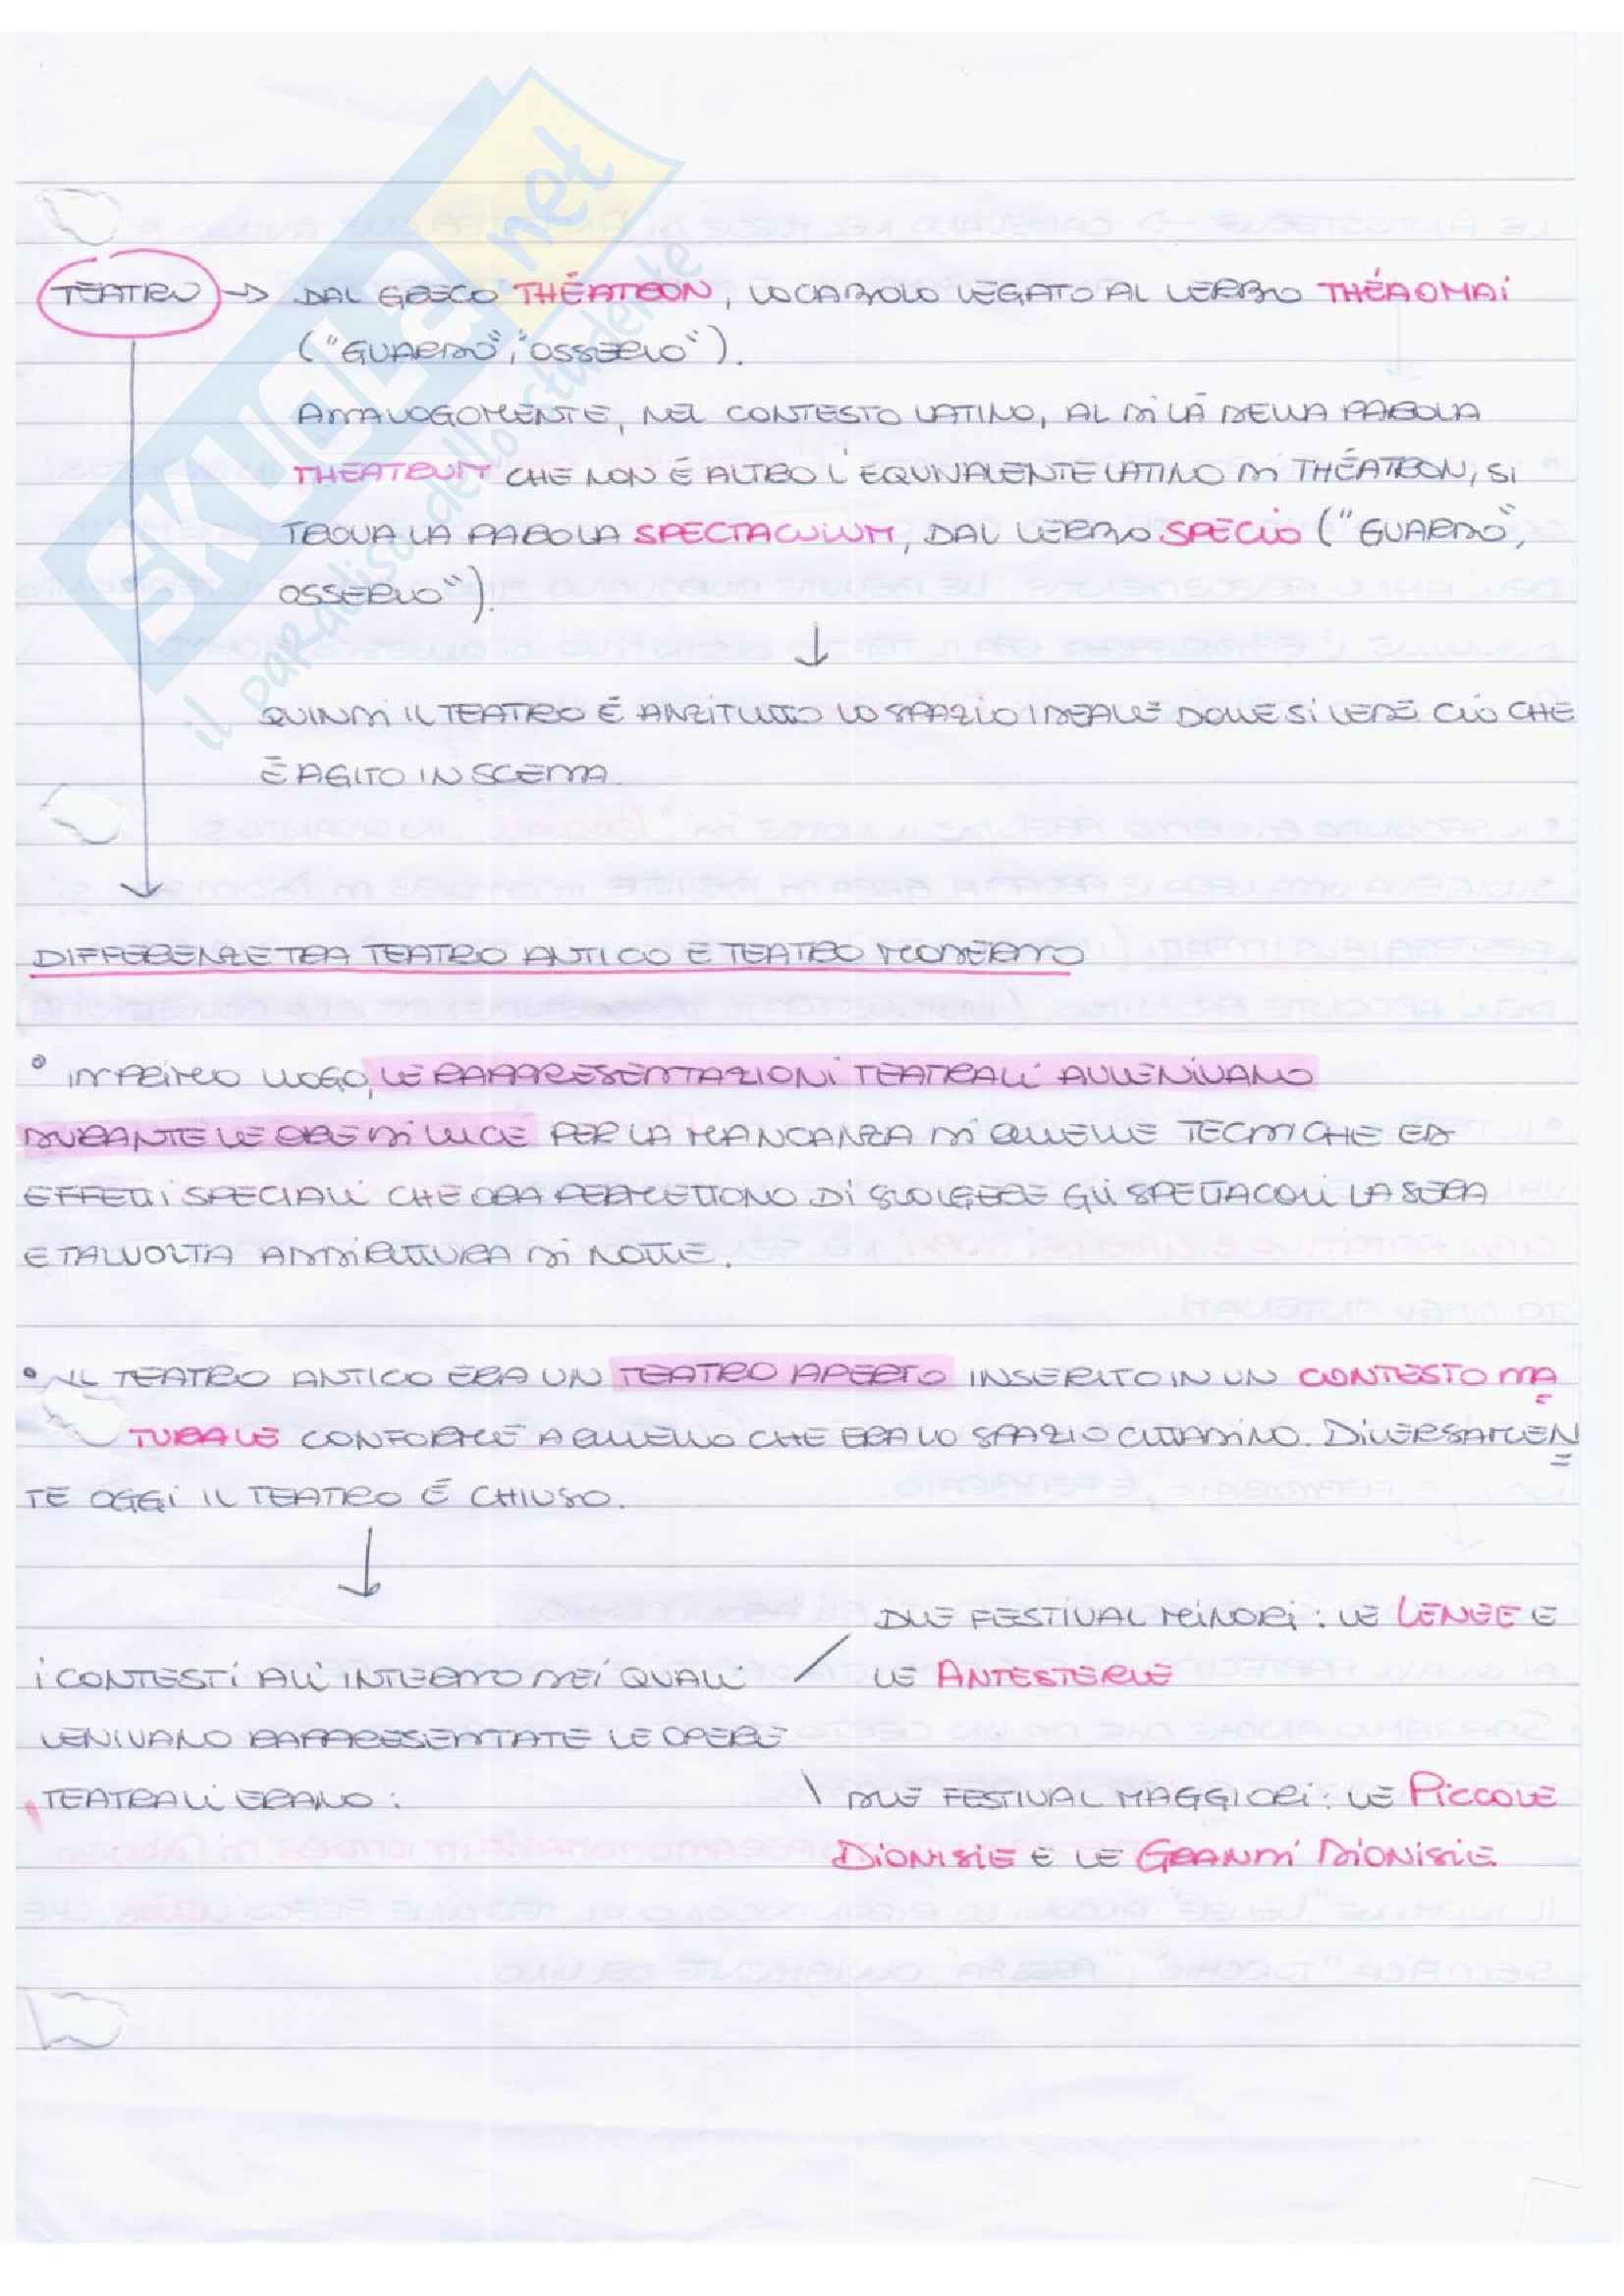 SKUOLA.net
il paradiso dello studente
TEATRO → DAL GRECO THÉATRON, VOCABOLO LEGATO AL VERBO THÉAOMAI
("GUARDO", "OSSERVO").
ANALOGAMENTE, NEL CONTESTO LATINO, AL DI LÀ DELLA PAROLA
THEATRUM CHE NON É ALTRO L'EQUIVALENTE LATINO DI THÉATRON, SI
TROVA LA PAROLA SPECTACULUM, DAL VERBO SPECIO ("GUARDO",
OSSERVO").
↓
QUINDI IL TEATRO É ANZITUTTO LO SPAZIO IDEALE DOVE SI VEDE CIÒ CHE
É AGITO IN SCENA.
DIFFERENZE TRA TEATRO ANTICO E TEATRO MODERNO
• IN PRIMO LUOGO, LE RAPPRESENTAZIONI TEATRALI AVVENIVANO
DURANTE LE ORE DI LUCE PER LA MANCANZA DI QUELLE TECNICHE ED
EFFETTI SPECIALI CHE ORA PERMETTONO DI SVOLGERE GLI SPETTACOLI LA SERA
E TALVOLTA ADDIRITTURA DI NOTTE.
• IL TEATRO ANTICO ERA UN TEATRO APERTO INSERITO IN UN CONTESTO NA=
TURALE CONFORME A QUELLO CHE ERA LO SPAZIO CITTADINO. DIVERSAMEN=
TE OGGI IL TEATRO É CHIUSO.
↓
I CONTESTI ALL'INTERNO DEI QUALI
VENIVANO RAPPRESENTATE LE OPERE
TEATRALI ERANO:
DUE FESTIVAL MINORI: LE LENEE E
LE ANTESTERIE
DUE FESTIVAL MAGGIORI: LE PICCOLE
DIONISIE E LE GRANDI DIONISIE.